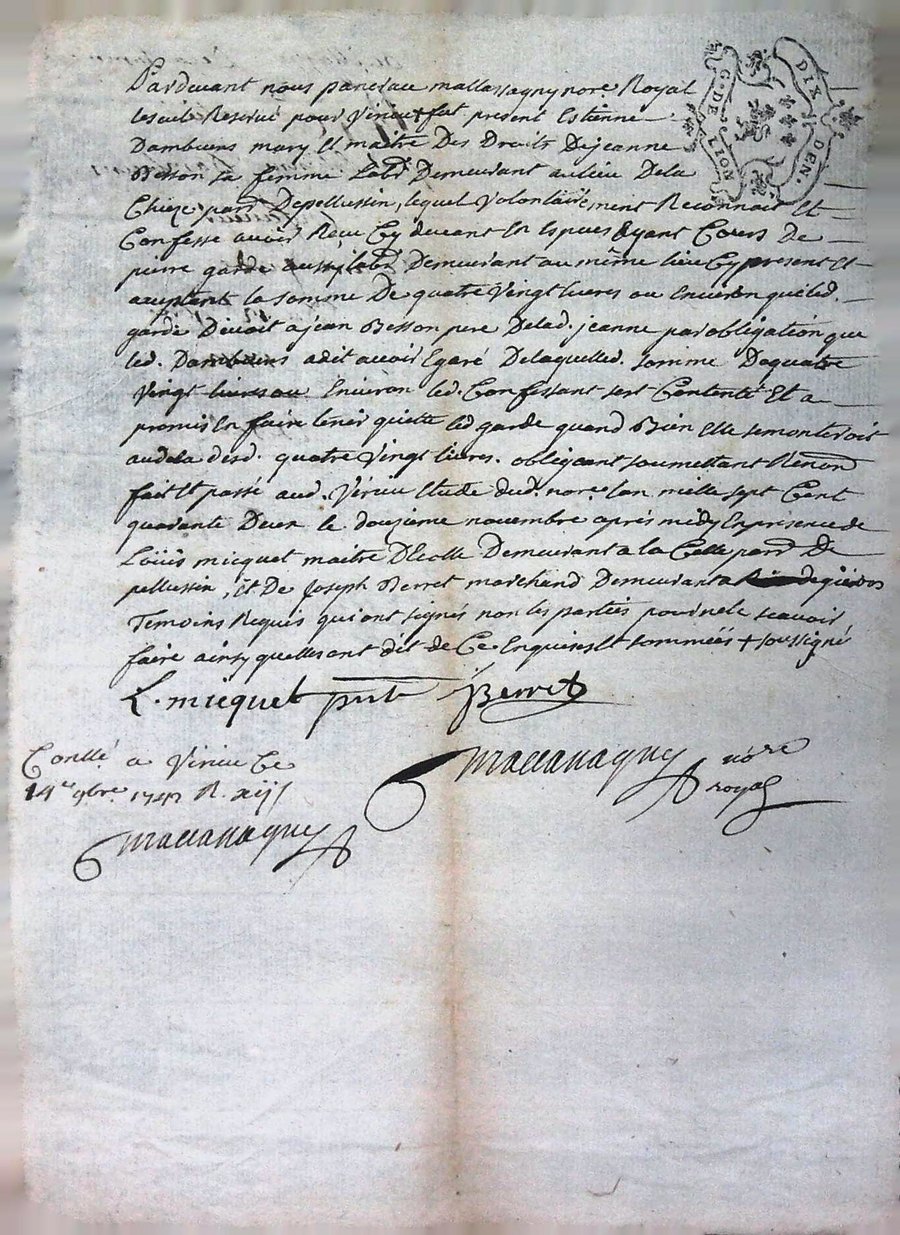 G. DE LION
DIX DEN.
Pardevant nous pancrace mallassagny nore Royal
Reservé pour Virieu + fut present Estienne
Dambuens mary Et maitre Des Droits De jeanne
Besson sa femme Labr Demeurant au lieu Dela
Chieze parr De pellussin, lequel volontairement Reconnait Et
Confesse avoir Reçu Cy devant En Espeues ayant Cours De
pierre garde aussy labr Demeurant au même lieu Cy present Et
aceptant la somme De quatre Vingt livres ou Environ que led.
garde Devoit a jean Besson pere Delad. jeanne par obligation que
led. Dambuens a dit avoir Egaré De laquelled. somme De quatre
Vingt livres ou Environ led. Confessant sest Contenté Et a
promis En faire tenir quitte led garde quand Bien Elle se monteroit
audela desd. quatre Vingt livres. obligeant soumettant Renond
fait Et passé aud. Virieu Etude dud. nore. Lan mille sept Cent
quarante Deux le douzieme novembre après midy En presence de
Loüis micquet maitre D'Ecolle Demeurant a la Celle parr De
pellussin, Et De Joseph Berret marchand Demeurant a
Temoins Requis qui ont signés non les parties pour ne le scavoir
faire ainsy quelles ont dit de Ce Enquises Et sommées + soussigné
L. micquet pnt Berret
Conllé a Virieu Ce
14e 9bre. 1742 R.
mallassagny nore
royal
mallassagny